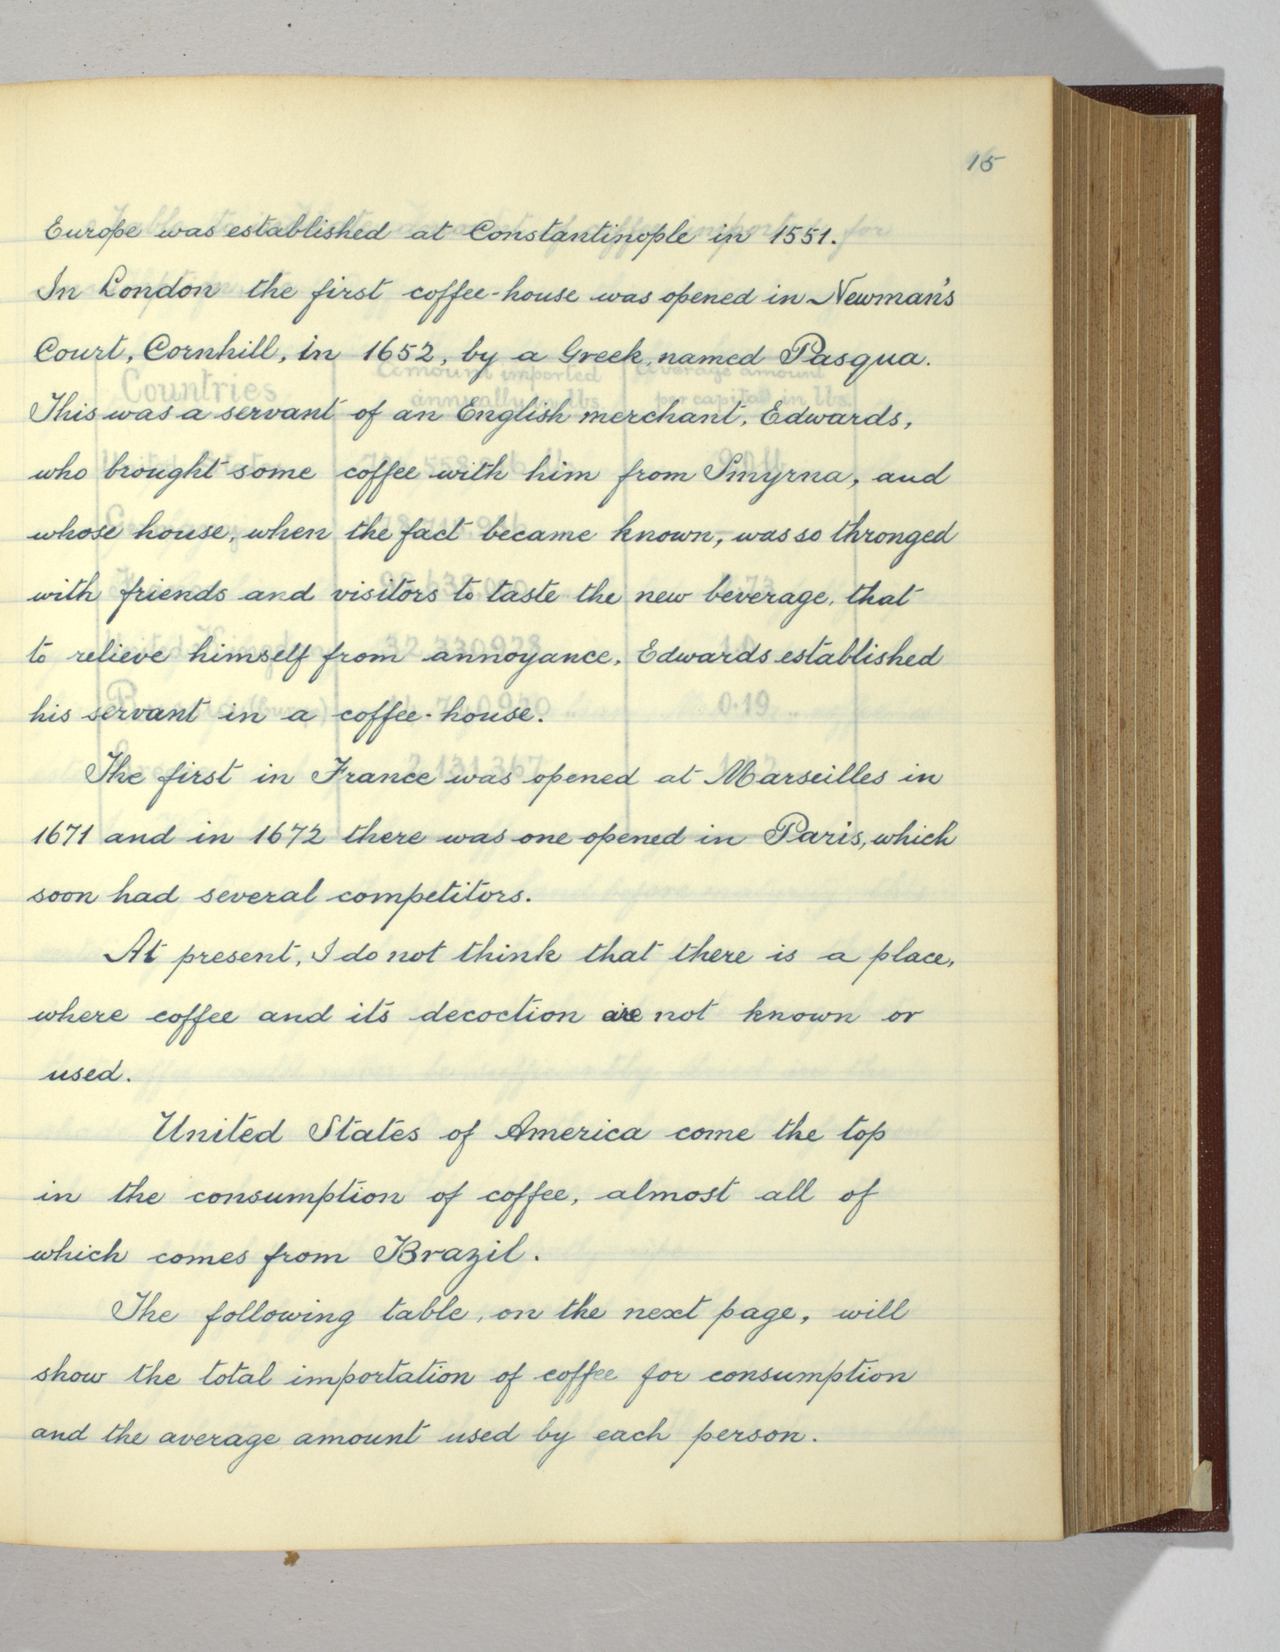 15
Europe was established at Constantinople in 1551.
In London the first coffee-house was opened in Newman's
Court, Cornhill, in 1652, by a Greek, named Pasqua.
This was a servant of an English merchant, Edwards,
who brought some coffee with him from Smyrna, and
whose house, when the fact became known, was so thronged
with friends and visitors to taste the new beverage, that
to relieve himself from annoyance, Edwards established
his servant in a coffee-house.
The first in France was opened at Marseilles in
1671 and in 1672 there was one opened in Paris, which
soon had several competitors.
At present, I do not think that there is a place,
where coffee and its decoction are not known or
used.
United States of America come the top
in the consumption of coffee, almost all of
which comes from Brazil.
The following table, on the next page, will
show the total importation of coffee for consumption
and the average amount used by each person.